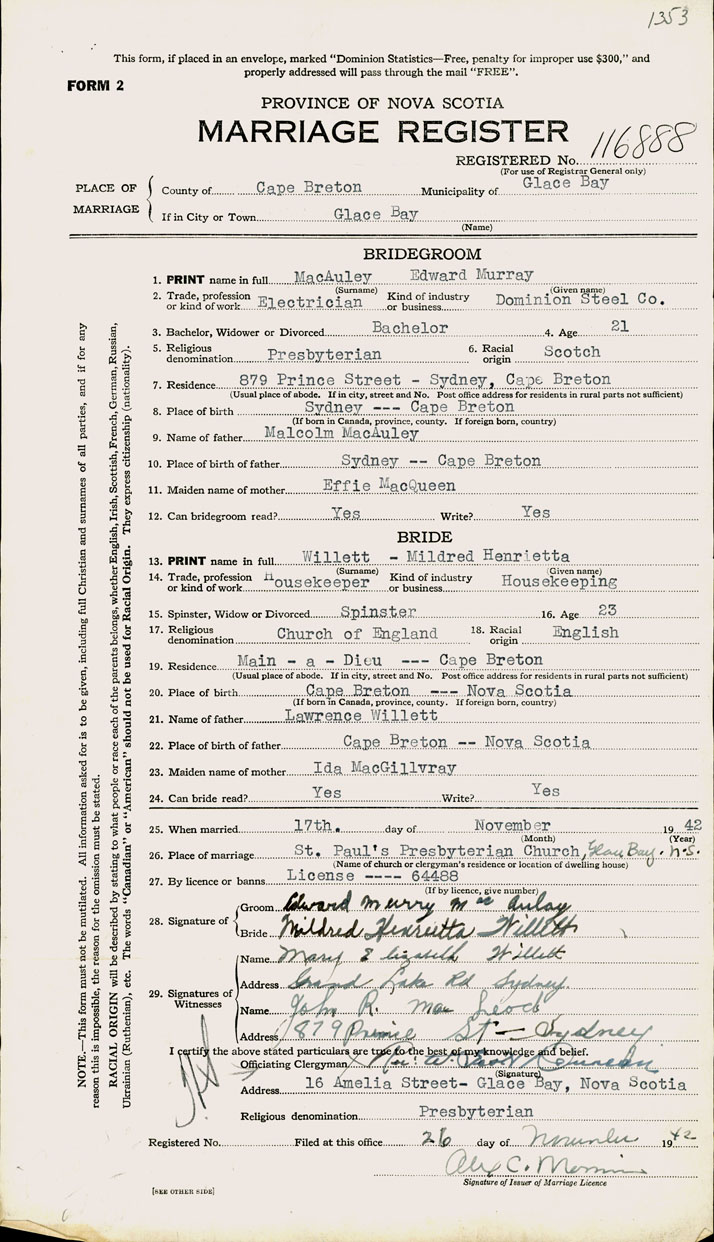 1353
This form, if placed in an envelope, marked "Dominion Statistics—Free, penalty for improper use $300," and
properly addressed will pass through the mail "FREE".
FORM 2
PROVINCE OF NOVA SCOTIA
MARRIAGE REGISTER
REGISTERED No. 116888
(For use of Registrar General only)
PLACE OF MARRIAGE
County of Cape Breton Municipality of Glace Bay
If in City or Town Glace Bay
(Name)
BRIDEGROOM
1. PRINT name in full MacAuley Edward Murray
(Surname) (Given name)
2. Trade, profession or kind of work Electrician Kind of industry or business Dominion Steel Co.
3. Bachelor, Widower or Divorced Bachelor 4. Age 21
5. Religious denomination Presbyterian 6. Racial origin Scotch
7. Residence 879 Prince Street - Sydney, Cape Breton
(Usual place of abode. If in city, street and No. Post office address for residents in rural parts not sufficient)
8. Place of birth Sydney --- Cape Breton
(If born in Canada, province, county. If foreign born, country)
9. Name of father Malcolm MacAuley
10. Place of birth of father Sydney -- Cape Breton
11. Maiden name of mother Effie MacQueen
12. Can bridegroom read? Yes Write? Yes
BRIDE
13. PRINT name in full Willett - Mildred Henrietta
(Surname) (Given name)
14. Trade, profession or kind of work Housekeeper Kind of industry or business Housekeeping
15. Spinster, Widow or Divorced Spinster 16. Age 23
17. Religious denomination Church of England 18. Racial origin English
19. Residence Main - a - Dieu --- Cape Breton
(Usual place of abode. If in city, street and No. Post office address for residents in rural parts not sufficient)
20. Place of birth Cape Breton --- Nova Scotia
(If born in Canada, province, county. If foreign born, country)
21. Name of father Lawrence Willett
22. Place of birth of father Cape Breton -- Nova Scotia
23. Maiden name of mother Ida MacGillvray
24. Can bride read? Yes Write? Yes
25. When married 17th. day of November 1942
(Month) (Year)
26. Place of marriage St. Paul's Presbyterian Church, Glace Bay. N.S.
(Name of church or clergyman's residence or location of dwelling house)
27. By licence or banns License ---- 64488
(If by licence, give number)
28. Signature of
Groom Edward Murry MacAulay
Bride Mildred Henrietta Willett
29. Signatures of Witnesses
Name Mary Elizabeth Willett
Address Grand Lake Rd Sydney.
Name John R. MacLeod
Address 879 Prince St - Sydney
I certify the above stated particulars are true to the best of my knowledge and belief.
Officiating Clergyman
(Signature)
Address 16 Amelia Street- Glace Bay, Nova Scotia
Religious denomination Presbyterian
Registered No. Filed at this office 26 day of November 1942
Alex C.
Signature of Issuer of Marriage Licence
[SEE OTHER SIDE]
NOTE.—This form must not be mutilated. All information asked for is to be given, including full Christian and surnames of all parties, and if for any
reason this is impossible, the reason for the omission must be stated.
RACIAL ORIGIN will be described by stating to what people or race each of the parents belongs, whether English, Irish, Scottish, French, German, Russian,
Ukrainian (Ruthenian), etc. The words "Canadian" or "American" should not be used for Racial Origin. They express citizenship (nationality).